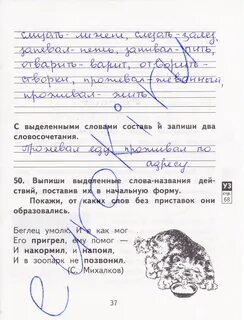 слизать - лижет, слезать - залез,
запевал - петь, запивал - пить,
отварить - варит, отворить -
створки, прожевал - жёванный,
проживал - жить
С выделенными словами составь и запиши два
словосочетания.
Прожевал еду, проживал по
адресу
50. Выпиши выделенные слова-названия дей-
ствий, поставив их в начальную форму.
Покажи, от каких слов без приставок они
образовались.
У3
стр.
58
Беглец умолк. И я как мог
Его пригрел, ему помог —
И накормил, и напоил,
И в зоопарк не позвонил.
(С. Михалков)
37